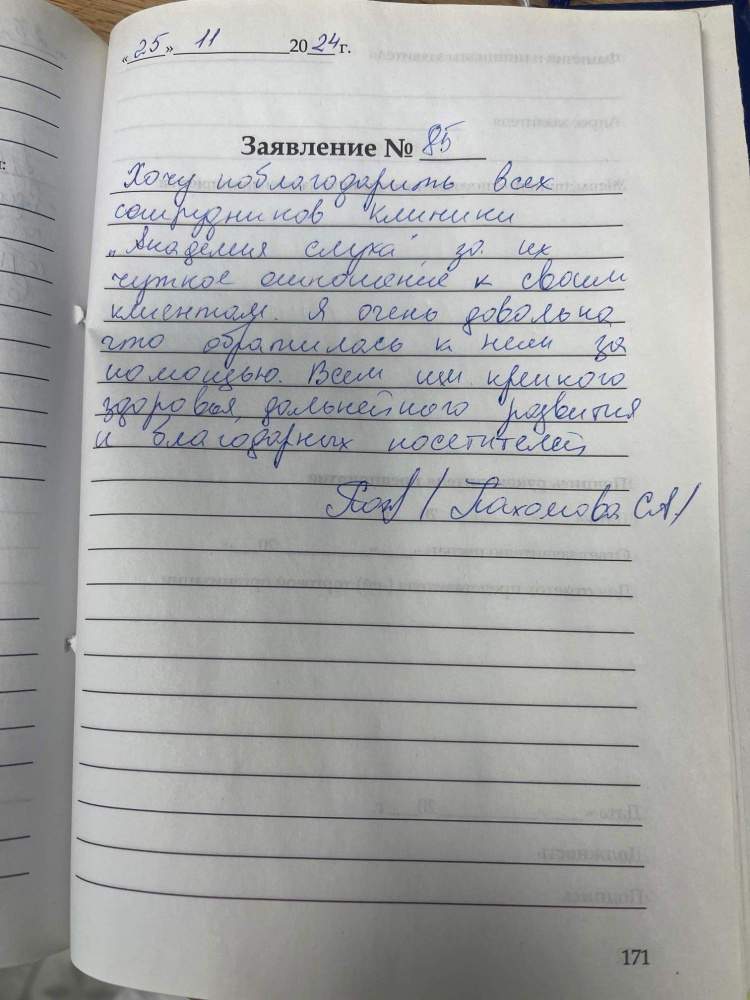 «25» 11 2024 г.
Заявление № 85
Хочу поблагодарить всех
сотрудников клиники
„Академия слуха" за их
чуткое отношение к своим
клиентам. Я очень довольна
что обратилась к ним за
помощью. Всем им крепкого
здоровья, дальнейшего развития
и благодарных посетителей
/ Пахомова С.А/
171